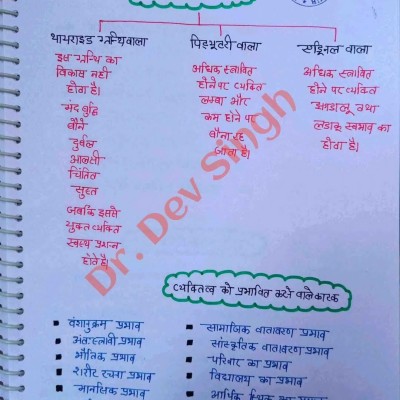 थायराइड ग्रन्थिवाला
इस ग्रन्थि का
विकास नहीं
होता है।
मंद बुद्धि
बौने
दुर्बल
आलसी
चिंतित
सुस्त
जबकि इससे
मुक्त व्यक्ति
स्वस्थ प्रधान
होते है।
पिट्यूटरी वाला
अधिक स्त्रावित
होने पर व्यक्ति
लम्बा और
कम होने पर
बौना रह
जाता है।
एड्रिनल वाला
अधिक स्त्रावित
होने पर व्यक्ति
झगडालू तथा
लडाकू स्वभाव का
होता है।
Dr. Dev Singh
व्यक्तित्व को प्रभावित करने वाले कारक
वंशानुक्रम प्रभाव
अंतःस्त्रावी प्रभाव
भौतिक प्रभाव
शरीर रचना प्रभाव
मानसिक प्रभाव
सामाजिक वातावरण प्रभाव
सांस्कृतिक वातावरण प्रभाव
परिवार का प्रभाव
विद्यालय का प्रभाव
आर्थिक